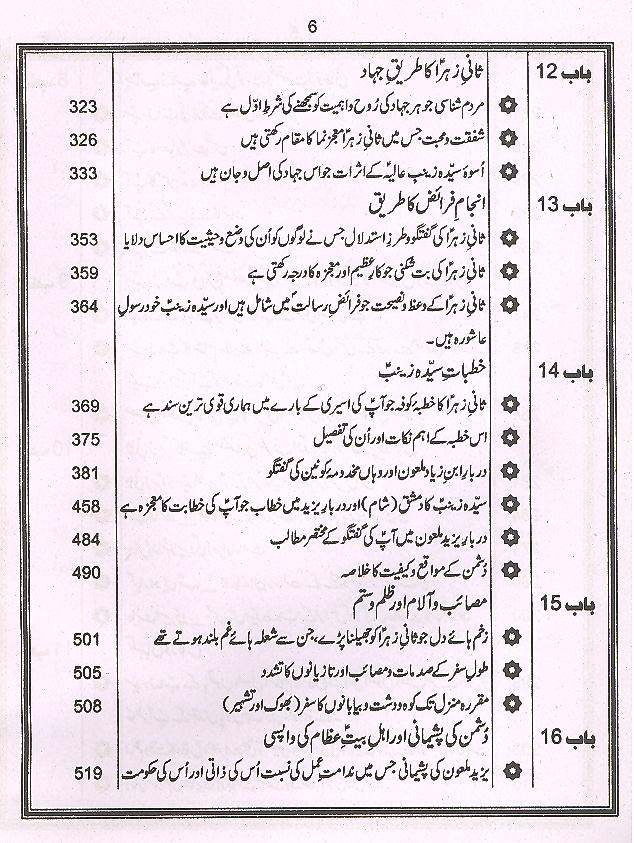 6
باب 12 ثانیِ زہراؑ کا طریقِ جہاد
مردم شناسی جو ہر جہاد کی رُوح و اہمیت کو سمجھنے کی شرطِ اوّل ہے 323
شفقت و محبت جس میں ثانیِ زہراؑ معجز نما کا مقام رکھتی ہیں 326
اُسوۂ سیّدہ زینبِ عالیہؑ کے اثرات جو اس جہاد کی اصل و جان ہیں 333
باب 13 انجامِ فرائض کا طریق
ثانیِ زہراؑ کی گفتگو و طرزِ استدلال جس نے لوگوں کو اُن کی وضع و حیثیت کا احساس دلایا 353
ثانیِ زہراؑ کی بت شکنی جو کارِ عظیم اور معجزہ کا درجہ رکھتی ہے 359
ثانیِ زہراؑ کے وعظ و نصیحت جو فرائضِ رسالت میں شامل ہیں اور سیّدہ زینبؑ خود رسولِ 364
عاشورہ ہیں۔
باب 14 خطباتِ سیّدہ زینبؑ
ثانیِ زہراؑ کا خطبہ کوفہ جو آپؑ کی اسیری کے بارے میں ہماری قوی ترین سند ہے 369
اس خطبہ کے اہم نکات اور اُن کی تفصیل 375
دربارِ ابنِ زیاد ملعون اور وہاں مخدومہ کونین کی گفتگو 381
سیّدہ زینبؑ کا دمشق (شام) اور دربارِ یزید میں خطاب جو آپؑ کی خطابت کا معجزہ ہے 458
دربارِ یزید ملعون میں آپؑ کی گفتگو کے مختصر مطالب 484
دُشمن کے مواقع و کیفیت کا خلاصہ 490
باب 15 مصائب و آلام اور ظلم و ستم
زخم ہائے دل جو ثانیِ زہراؑ کو جھیلنا پڑے، جن سے شعلہ ہائے غم بلند ہوتے تھے 501
طولِ سفر کے صدمات و مصائب اور تازیانوں کا تشدد 505
مقررہ منزل تک کوہ و دشت و بیابانوں کا سفر (بھوک اور تشہیر) 508
باب 16 دُشمن کی پشیمانی اور اہلِ بیتِؑ عظام کی واپسی
یزید ملعون کی پشیمانی جس میں ندامتِ عمل کی نسبت اُس کی ذاتی اور اُس کی حکومت 519